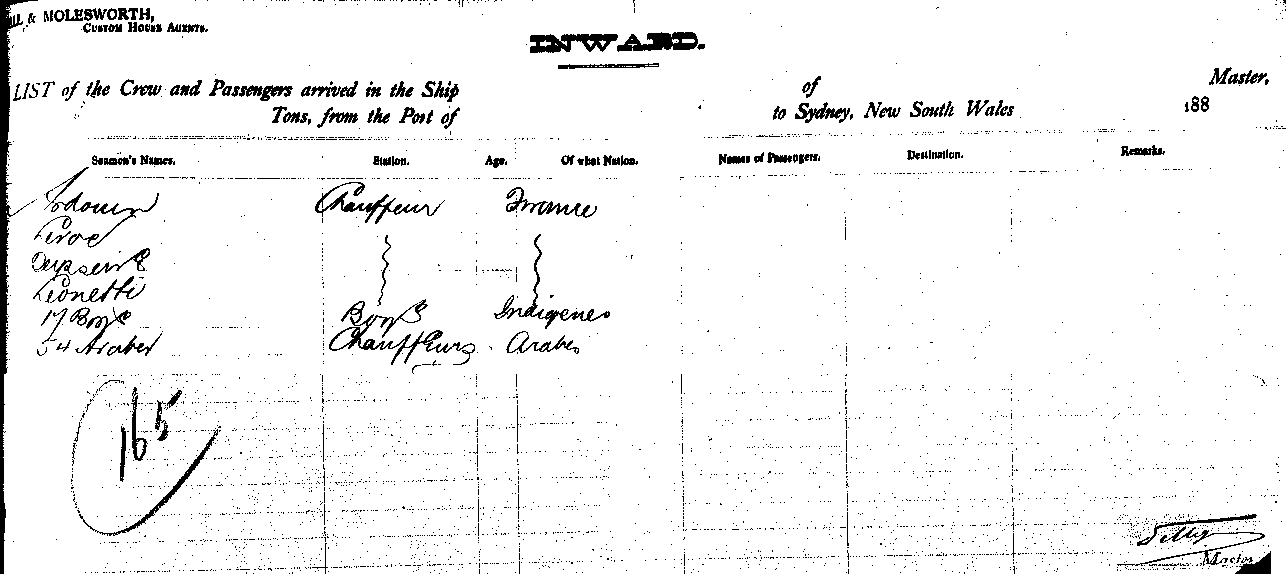 & MOLESWORTH,
CUSTOM HOUSE AGENTS.
INWARD.
LIST of the Crew and Passengers arrived in the Ship of Master,
Tons, from the Port of to Sydney, New South Wales 188
Seamen's Names. Station. Age. Of what Nation. Names of Passengers. Destination. Remarks.
Chauffeur France
Leonetti
17 Boys Boys Indigenes
54 Arabes Chauffeurs Arabes
165
Master